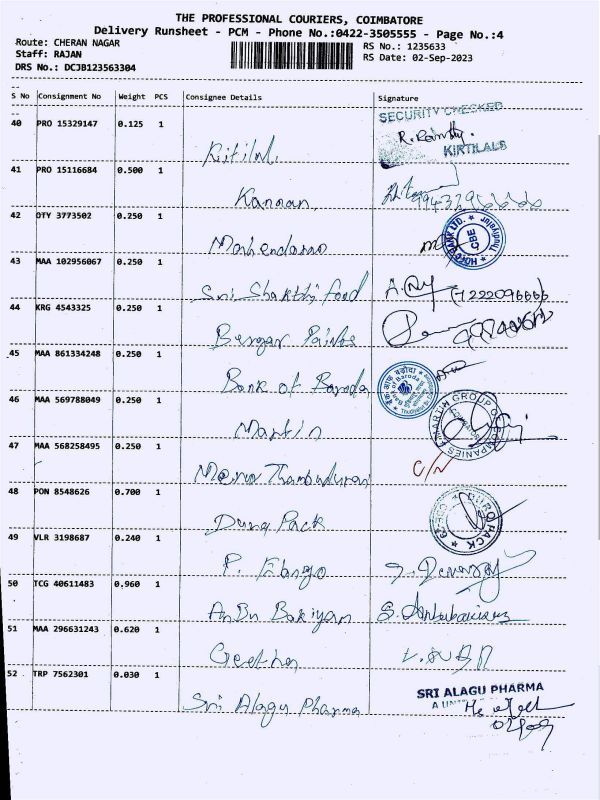 THE PROFESSIONAL COURIERS, COIMBATORE
Delivery Runsheet - PCM - Phone No.:0422-3505555 - Page No.:4
Route: CHERAN NAGAR RS No.: 1235633
Staff: RAJAN RS Date: 02-Sep-2023
DRS No.: DCJB123563304
S No Consignment No Weight PCS Consignee Details Signature
40 PRO 15329147 0.125 1 SECURITY CHECKED
Kirtilal KIRTILALS
41 PRO 15116684 0.500 1
Kannan
42 OTY 3773502 0.250 1
Mahendaran
43 MAA 102956067 0.250 1
Sri Shakthi food
44 KRG 4543325 0.250 1
Berger Paints
45 MAA 861334248 0.250 1
Bank of Baroda
46 MAA 569788049 0.250 1 MARTIN GROUP OF COMPANIES
Martin
47 MAA 568258495 0.250 1 C/N
48 PON 8548626 0.700 1
Dura Pack
49 VLR 3198687 0.240 1
P. Elango
50 TCG 40611483 0.960 1
Anbu Bakiyam
51 MAA 296631243 0.620 1
Geetha
52 TRP 7562301 0.030 1 SRI ALAGU PHARMA
Sri Alagu Pharma